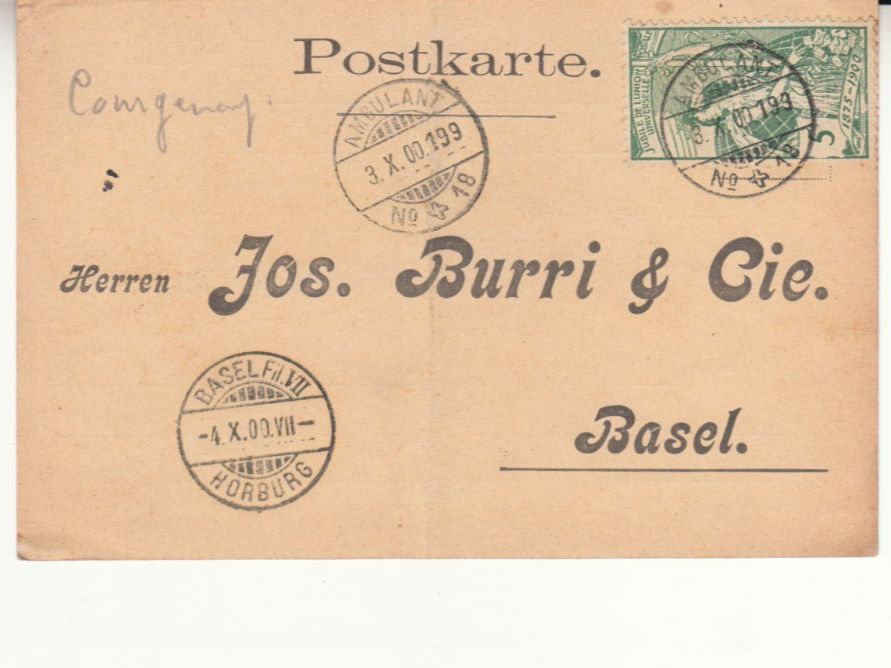 Postkarte.
Courgenay.
AMBULANT
3.X.00.199
No 18
JUBILÉ DE L'UNION
POSTALE
UNIVERSELLE
1875-1900
5
AMBULANT
3.X.00.199
No 18
Herren Jos. Burri & Cie.
BASEL Fil.VII
-4.X.00.VII-
HORBURG
Basel.